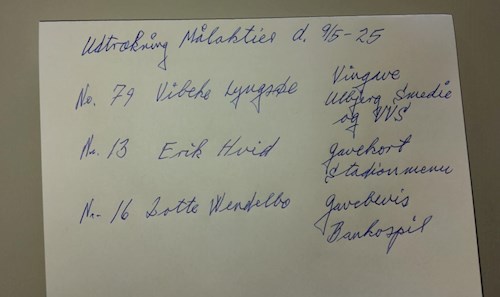 Udtrækning Målaktier d. 9/5-25
No. 79 Vibeke Lyngsøe Vingave
Ulbjerg Smedie
og VVS
Nr. 13 Erik Hvid gavekort
Stadionmenu
Nr. 16 Lotte Wendelbo Gavebevis
Bankospil